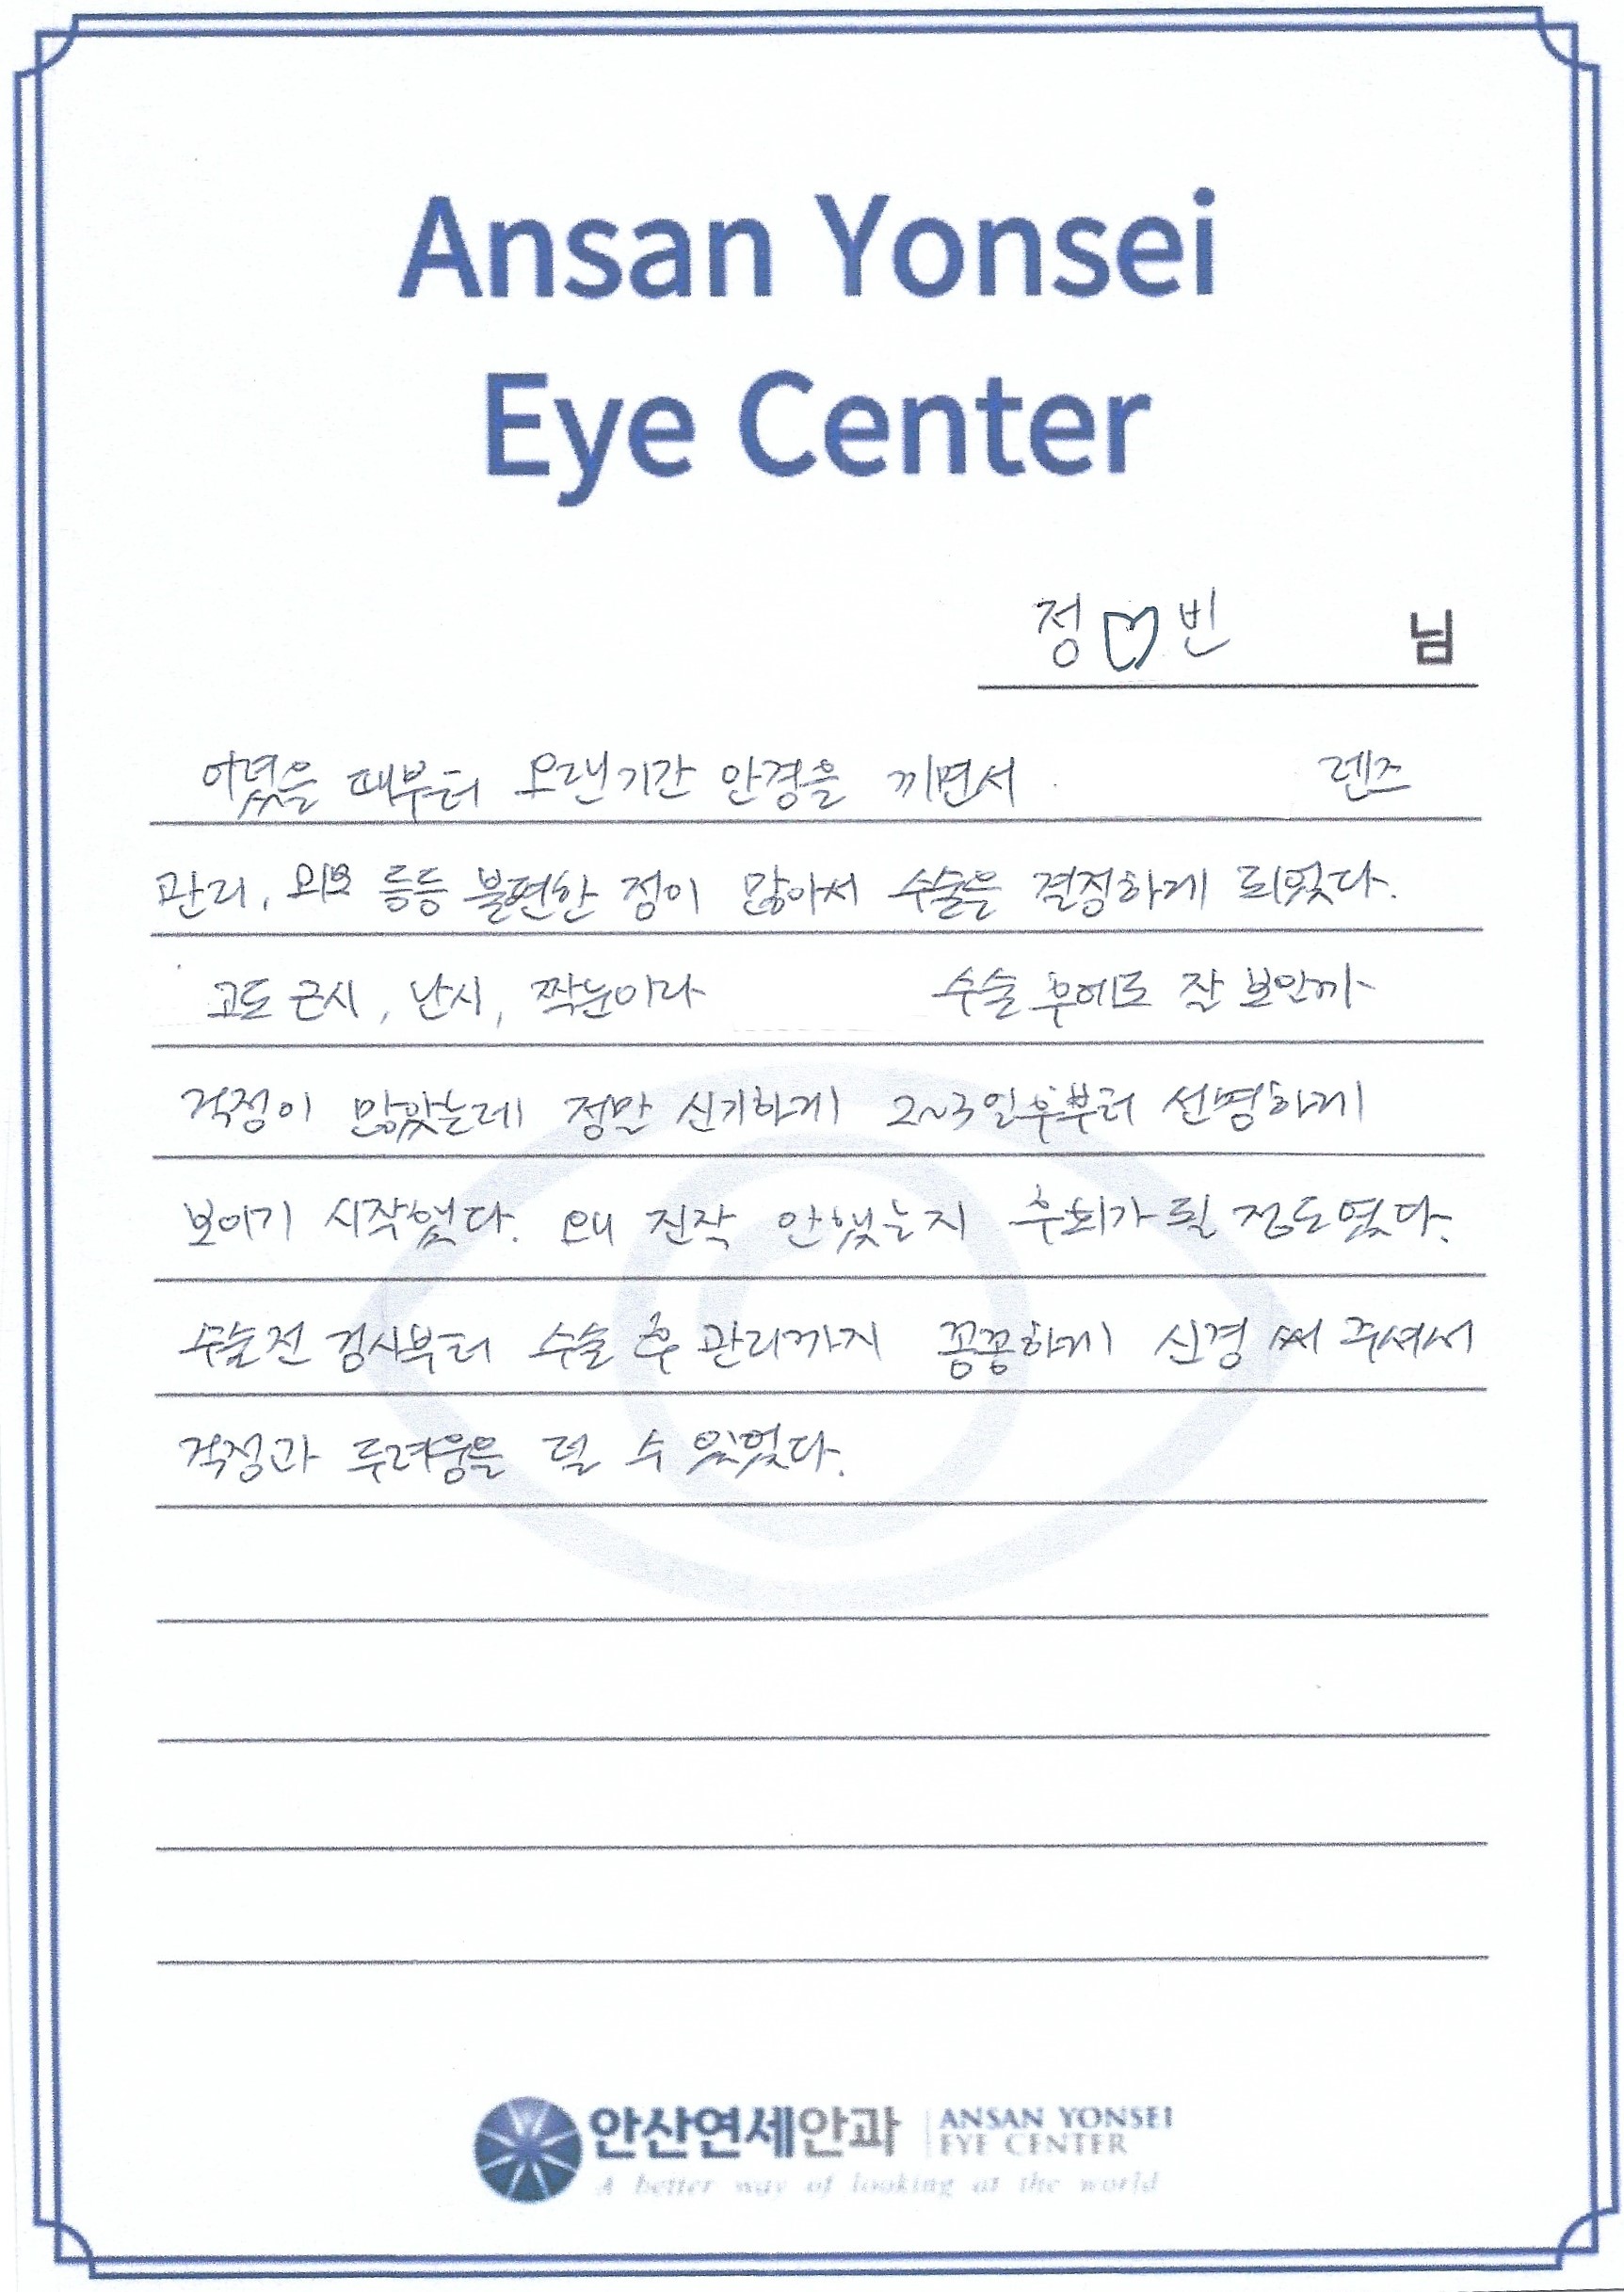 Ansan Yonsei
Eye Center
정♡빈 님
어렸을 때부터 오랜기간 안경을 끼면서 렌즈
관리, 외모 등등 불편한 점이 많아서 수술을 결정하게 되었다.
고도 근시, 난시, 짝눈이라 수술 후에도 잘 보일까
걱정이 많았는데 정말 신기하게 2~3일후부터 선명하게
보이기 시작했다. 왜 진작 안했는지 후회가 될 정도였다.
수술전 검사부터 수술 후 관리까지 꼼꼼하게 신경 써 주셔서
걱정과 두려움을 덜 수 있었다.
안산연세안과 ANSAN YONSEI
EYE CENTER
A better way of looking at the world